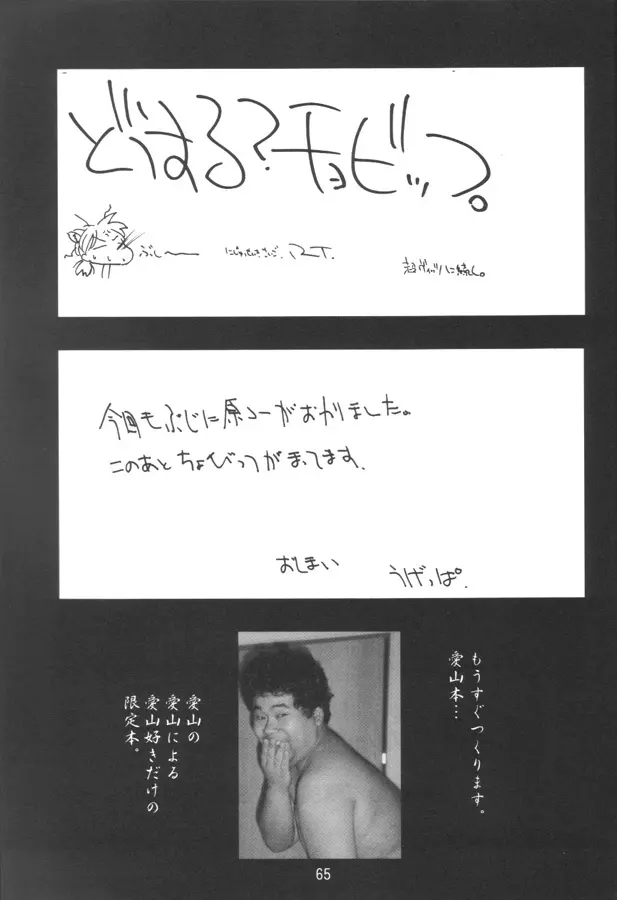 どうする?チョビッツ。
ぷしー
今回もぶじに原コーがおわりました。
このあとちょびっつがまってます
おしまい
うげっぱ。
もうすぐつくります。
愛山本…
愛山の
愛山による
愛山好きだけの
限定本。
65